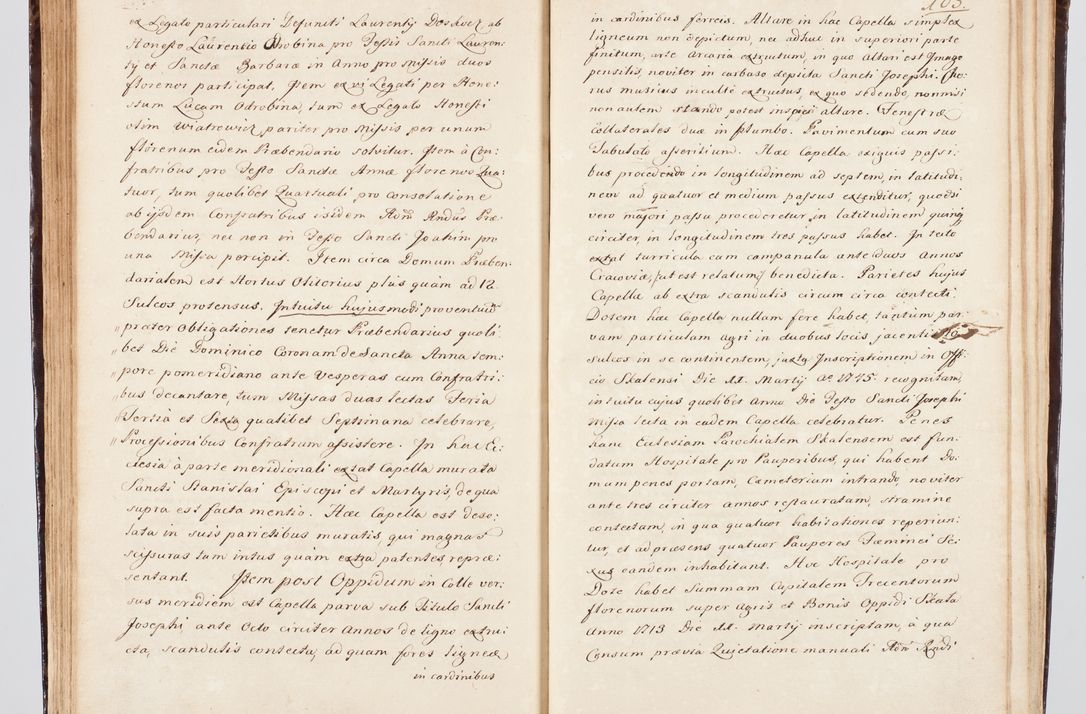 ex Legato particulari Defuncti Laurentij Doskocz ab
Honesto Laurentio Odrobina pro Festis Sancti Lauren:
tij et Sanctæ Barbaræ in Anno pro Missis duos
florenos participat, Item ex vi Legati per Hone:
stum Lucam Odrobina, tum ex Legato Honesti
olim Wiatrewicz pariter pro Missis per unum
florenum eidem Præbendario solvitur. Item à Con:
fratribus pro Festo Sanctæ Annæ florenos Qua:
tuor, tum quolibet Quartuali pro consolatione
ab ijsdem Confratribus isidem Adm Rndus Præ:
bendarius, nec non in Festo Sancti Joachim pro
una Missa percipit. Item circa Domum Præben:
darialem est Hortus Olitorius plus quàm ad 12.
Sulcos protensus. Intuitu hujusmodi proventuum
" præter Obligationes tenetur Præbendarius quoli:
" bet Die Dominico Coronam de Sancta Anna tem:
" pore pomeridiano ante Vesperas cum Confratri:
" bus decantare, tum Missas duas lectas Feria
" Tertia et Sexta qualibet Septimana celebrare,
" Processionibus Confratrum assistere. In hac Ec:
clesia à parte meridionali extat Capella murata
Sancti Stanislai Episcopi et Martyris, de qua
supra est facta mentio. Hæc Capella est deso:
lata in suis parietibus muratis qui magnas
scissuras tam intus quàm extra patentes, repræ:
sentant. Item post Oppidum in Colle ver:
sus meridiem est Capella parva sub Titulo Sancti
Josephi ante Octo circiter Annos de ligno extru:
cta, scandulis contecta, ad quam fores ligneæ
in cardinibus
165.
in cardinibus ferreis. Altare in hac Capella simplex
ligneum non depictum, nec adhuc in superiori parte
finitum, arte Arcaria extructum, in quo Altari est Imago
pensilis, noviter in carbaso depicta Sancti Josephi. Cho:
rus musicus incultè extructus, ex quo sedendo, nonnisi
non autem stando potest inspici altare. Fenestræ
collaterales duæ in plumbo. Pavimentum cum suo
Tabulato asseritium. Hæc Capella exiguis passi:
bus procedendo in longitudinem ad septem, in latitudi:
nem ad quatuor et medium passus extenditur, quodsi
vero majori passu procederetur, in latitudinem quinq
circiter, in longitudinem tres passus habet. In tecto
extat turricula cum campanula ante duos Annos
Cracoviæ, ut est relatum, benedicta. Parietes hujus
Capellæ ab extra scandulis circum circa contecti.
Dotem hæc Capella nullam fere habet, tantum par:
vam particulam agri in duobus locis jacentis
sulcos in se continentem, juxta Inscriptionem in Offi:
cio Skalensi Die 11. Martij Ao 1775. recognitam,
intuitu cujus quolibet Anno Die Festo Sancti Josephi
Missa lecta in eadem Capella celebratur. Penes
hanc Ecclesiam Parochialem Skalensem est fun:
datum Hospitale pro Pauperibus, qui habent Do:
mum penes portam, Cæmeterium intrando, noviter
ante tres circiter annos restauratam, stramine
contectam, in qua quatuor habitationes reperiun:
tur, et ad præsens quatuor Pauperes Fæminei Se:
xus eandem inhabitant. Hoc Hospitale pro
Dote habet Summam Capitalem Trecentorum
florenorum super Agris et Bonis Oppidi Skala
Anno 1713 Die 11. Martij inscriptam, à qua
Censum prævia Quietatione manuali Adm Rndi